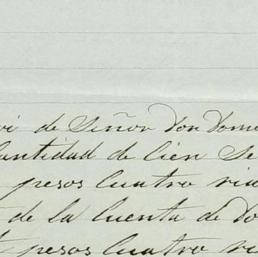 vi de Señor Don Dome
Cantidad de Cien Se
pesos Cuatro rea
de la Cuenta de Do
pesos Cuatro re